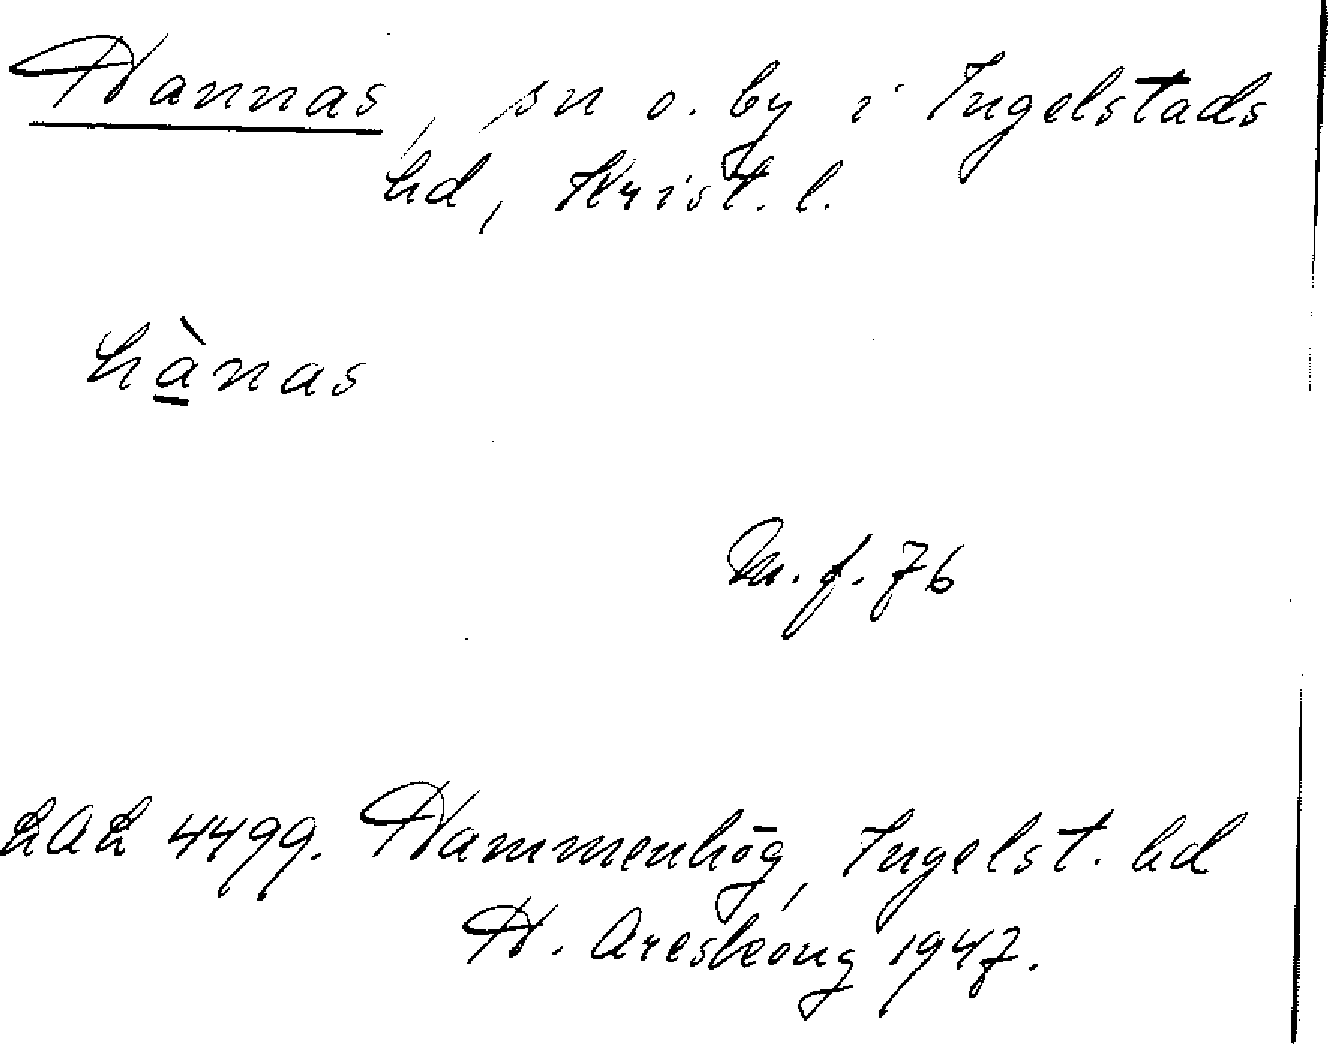 Hannas, sn o. by i Ingelstads
hd, Krist. l.
hànas
M. f. 76
LAL 4499. Hammenhög, Ingelst. hd
H. Areskoug 1947.